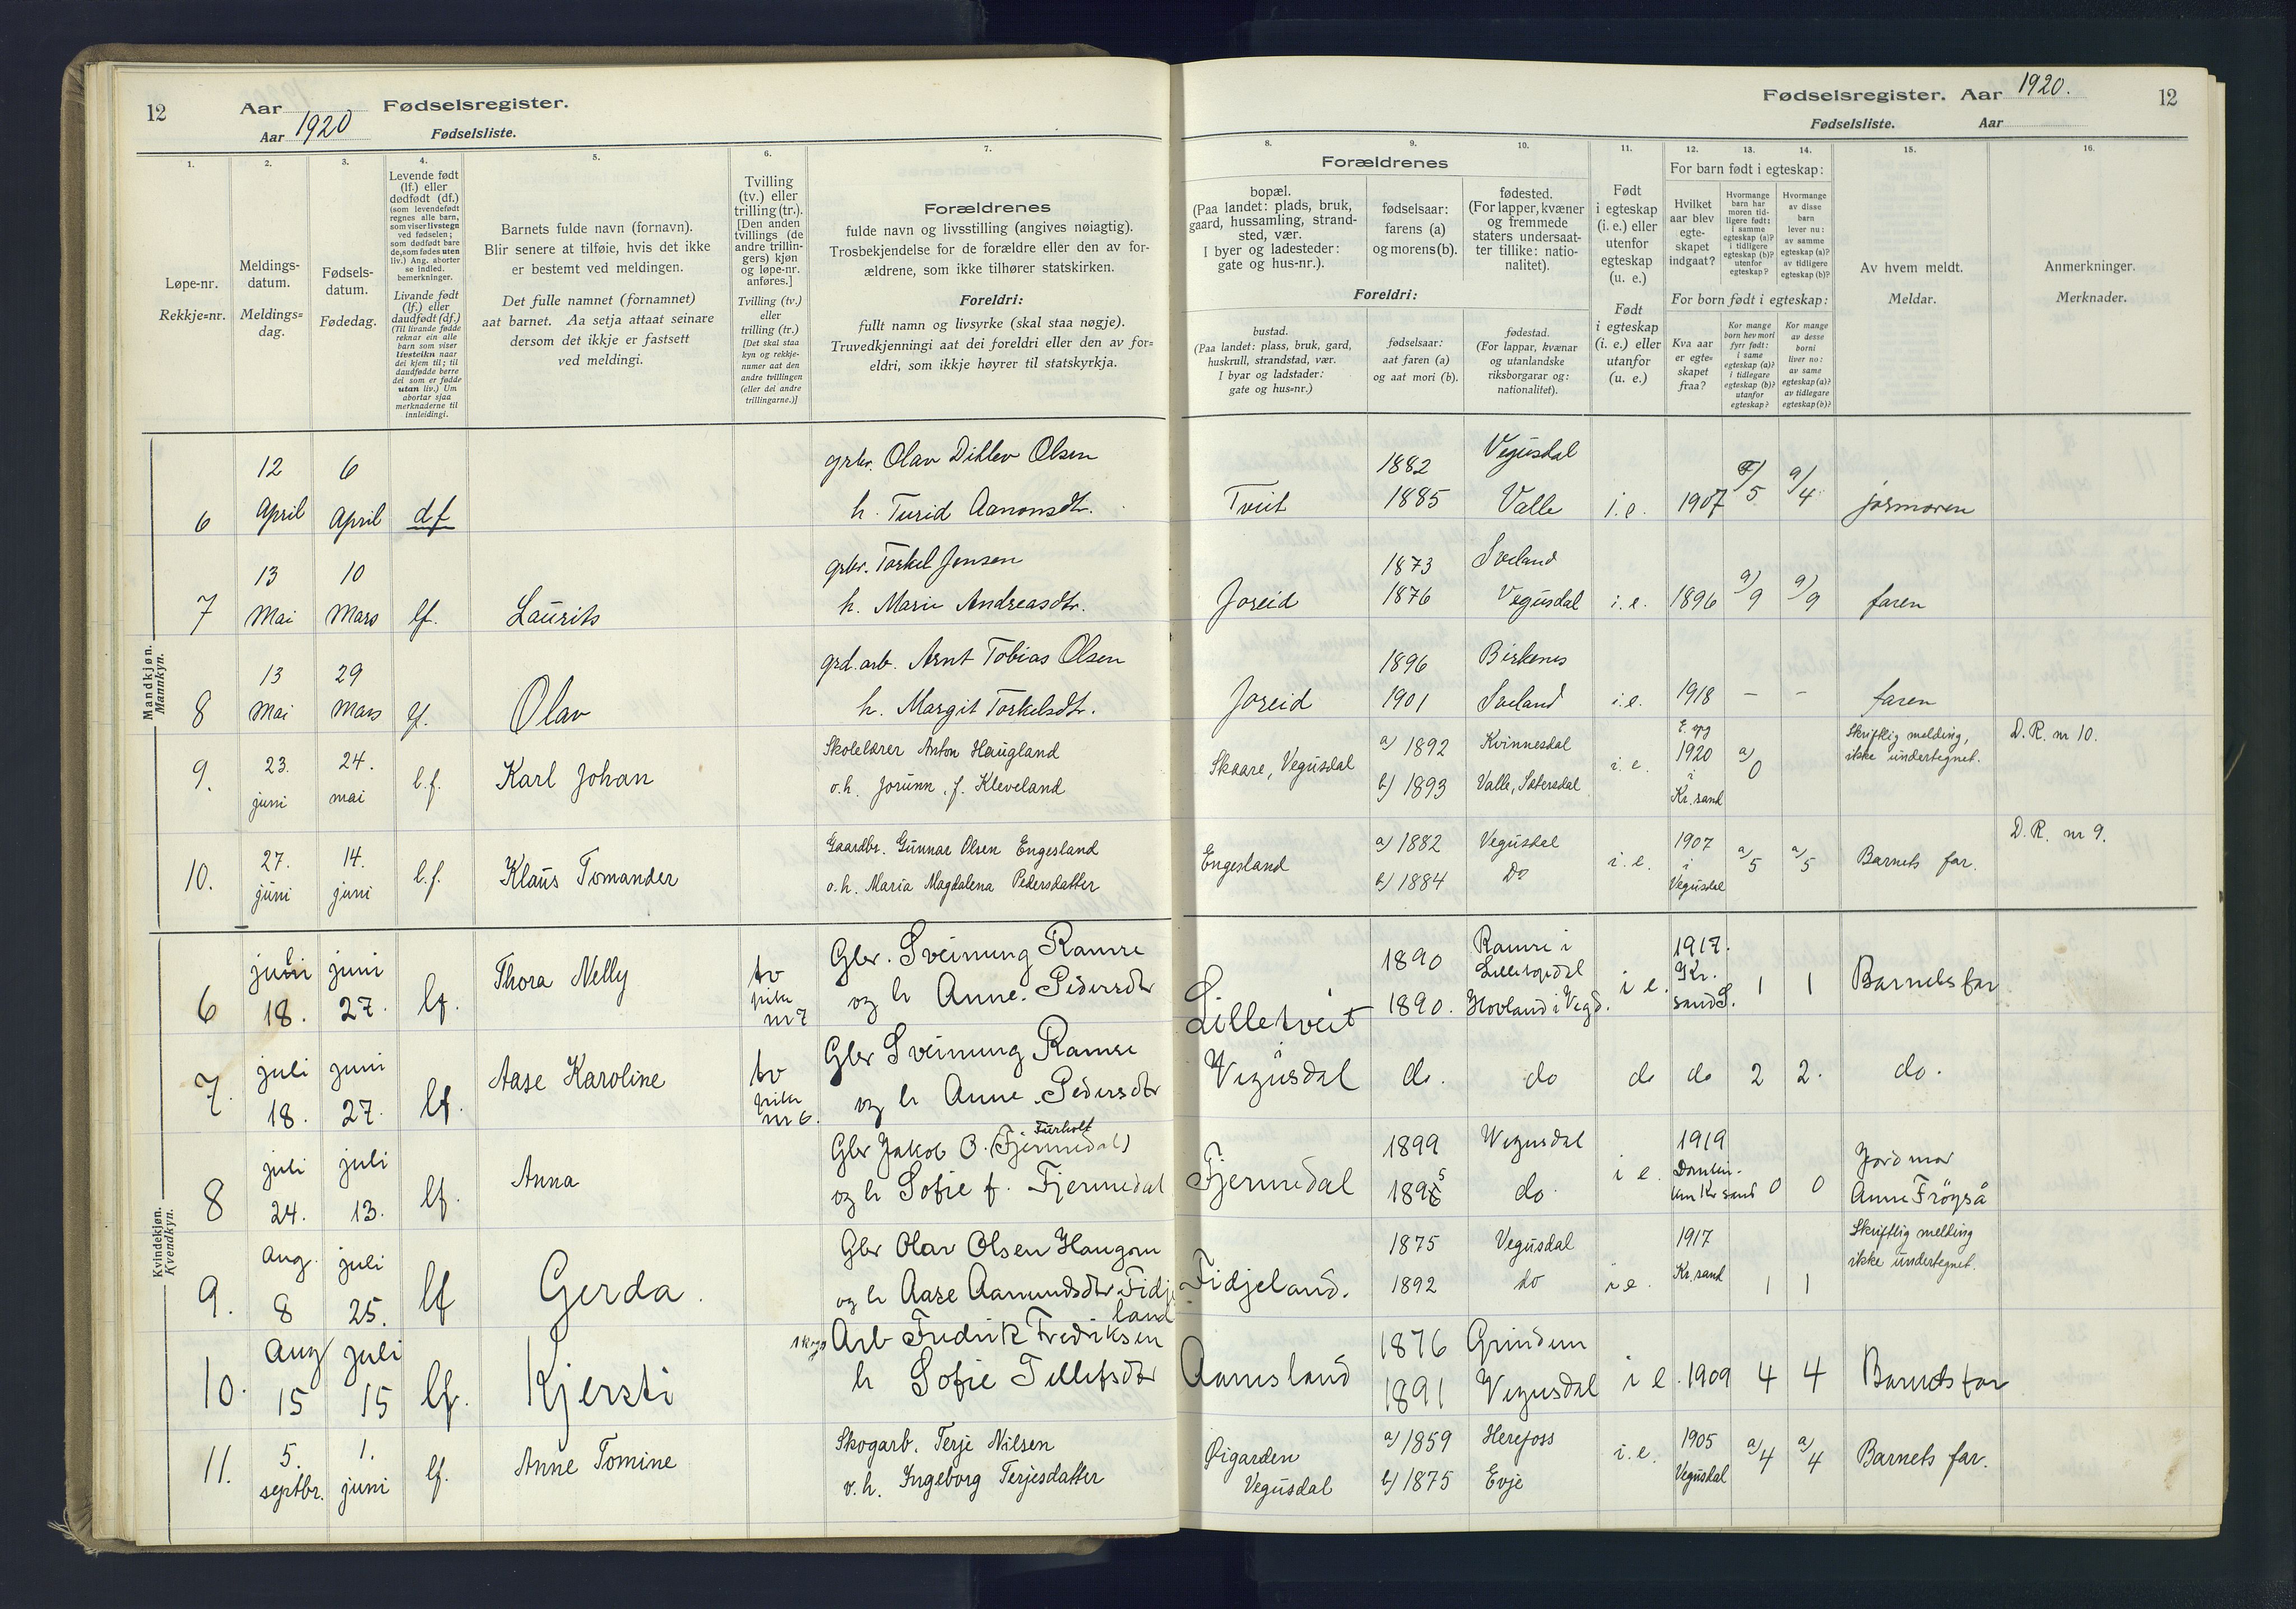 12
Aar
Fødselsregister.
Aar 1920
Fødselsliste.
Fødselsregister. Aar 1920.
12
Fødselsliste.
Aar
1.
Løpe-nr.
Rekkje=nr.
2.
Meldings-
datum.
Meldings=
dag.
3.
Fødsels-
datum.
Fødedag.
4.
Levende født
(lf.) eller
dødfødt (df.)
(som levendefødt
regnes alle barn,
som viser livstegn
ved fødselen;
som dødfødt bare
de, som fødes uten
liv.) Ang. aborter
se indled.
bemerkninger.
Livande født
(lf.) eller
daudfødt (df.)
(Til livande fødde
reknar ein alle
barn som viser
livsteikn naar
dei kjem til; til
daudfødde berre
dei som er fødde
utan liv.) Um
abortar sjaa
merknaderne til
innleidingi.
5.
Barnets fulde navn (fornavn).
Blir senere at tilføie, hvis det ikke
er bestemt ved meldingen.
Det fulle namnet (fornamnet)
aat barnet. Aa setja attaat seinare
dersom det ikkje er fastsett
ved meldingi.
6.
Tvilling
(tv.) eller
trilling (tr.).
[Den anden
tvillings (de
andre trillin-
gers) kjøn
og løpe-nr.
anføres.]
Tvilling (tv.)
eller
trilling (tr.)
[Det skal staa
kyn og rekkje-
numer aat den
andre tvillingen
(eller dei andre
trillingarne.)]
7.
Forældrenes
fulde navn og livsstilling (angives nøiagtig).
Trosbekjendelse for de forældre eller den av for-
ældrene, som ikke tilhører statskirken.
Foreldri:
fullt namn og livsyrke (skal staa nøgje).
Truvedkjenningi aat dei foreldri eller den av for=
eldri, som ikkje høyrer til statskyrkja.
8.
Forældrenes
bopæl.
(Paa landet: plads, bruk,
gaard, hussamling, strand-
sted, vær.
I byer og ladesteder:
gate og hus-nr.).
Foreldri:
bustad.
(Paa landet: plass, bruk, gard,
huskrull, strandstad, vær.
I byar og ladstader:
gate og hus=nr.)
9.
fødselsaar:
farens (a)
og morens (b).
fødselsaar:
aat faren (a)
og aat mori (b).
10.
fødested.
(For lapper, kvæner
og fremmede
staters undersaat-
ter tillike: natio-
nalitet).
fødestad.
(For lappar, kvænar
og utanlandske
riksborgarar og:
nationalitet).
11.
Født
i egteskap
(i. e.) eller
utenfor
egteskap
(u. e.)
Født
i egteskap
(i. e.) eller
utanfor
(u. e.)
12.
For barn født i egteskap:
Hvilket
aar blev
egte-
skapet
indgaat?
For born født i egteskap:
Kva aar
er egte=
skapet
fraa?
13.
Hvormange
barn har
moren tid-
ligere født:
i samme
egteskap (a)?
i tidligere
egteskap (b)?
utenfor
egteskap?
Kor mange
born hev mori
fyrr født:
i same
egteskap (a)?
i tidlegare
egteskap (b)?
utanfor
egteskap?
14.
Hvormange
av disse
barn
lever nu:
av samme
egteskap (a)?
av tidligere
egteskap (b)?
Kor mange
av desse
borni
liver no:
av same
egteskap (a)?
av tidlegare
egteskap (b)?
15.
Av hvem meldt.
Meldar.
16.
Anmerkninger.
Merknader.
Mandkjøn.
Mannkyn.
6
12
April
6
April
df
grbr. Olav Ditlev Olsen
h. Turid Aanonsdtr.
Tveit
1882
1885
Vegusdal
Valle
i.e.
1907
a/5
a/4
jormoren
7
13
Mai
10
Mars
lf.
Laurits
grbr. Torkel Jensen
h. Marie Andreasdtr.
Joreid
1873
1876
Sveland
Vegusdal
i.e.
1896
a/9
a/9
faren
8
13
Mai
29
Mars
lf.
Olav
grd. arb. Arnt Tobias Olsen
h. Margit Torkelsdtr.
Joreid
1896
1901
Birkenes
Sveland
i.e.
1918
–
–
faren
9.
23.
juni
24.
mai
l.f.
Karl Johan
Skolelærer Anton Haugland
o.h. Jorunn, f. Kleveland
Skaare, Vegusdal
a) 1892
b) 1893
Kvinnesdal
Valle, Sætersdal
i.e.
1920
i
Kr.sand
a/0
Skriftlig melding,
ikke undertegnet.
D. R. nr 10.
10.
27.
juni
14.
juni
l.f.
Klaus Tomander
Gaardbr. Gunnar Olsen Engesland
o.h. Maria Magdalena Pedersdatter
Engesland
a) 1882
b) 1884
Vegusdal
Do
i.e.
1907
i
Vegusdal
a/5
a/5
Barnets far.
D. R. nr 9.
Kvindekjøn.
Kvendkyn.
6
juli
18.
juni
27.
lf.
Thora Nelly
tv
pike
nr 7
Gbr. Sveinung Ramse
og h Anne. Pedersdtr
Lilletveit
1890
1890.
Ramse i
Lilletopdal
Hovland i Vegd.
i e.
1917.
Kr.
sand S.
1
1
Barnets far
7.
juli
18.
juni
27.
lf.
Aase Karoline
tv
pike
nr 6.
Gbr Sveinung Ramse
og h Anne. Pedersdtr
i
Vegusdal
do.
do
do
do
2
2.
do.
8
juli
24.
juli
13.
lf.
Anna
Turholt
Gbr Jakob O. (Fjermedal)
og h Sofie f. Fjermedal
Fjermedal
1899
1895
Vegusdal
do.
i e.
1919
Domkir-
ken Kr sand
0
0
Jordmor
Anne Frøyså
9.
aug.
8
juli
25.
lf
Gerda.
Gbr Olav Olsen Haugom
og h Aase Aamundsdtr Fidje
land
Fidjeland.
1875
1892
Vegusdal
do
i e.
1917
Kr.sand
1
1
Skriftlig melding
ikke undertegnet.
10.
Aug
15
juli
15
lf.
Kjersti
skogs Arb Fredrik Fredriksen
h Sofie Tellefsdtr
Aamesland
1876
1891
Grindum
Vegusdal
i e.
1909
4
4
Barnets far
11.
5.
septbr.
1.
juni
lf.
Anne Tomine
Skogarb. Terje Nilsen
o.h. Ingeborg Terjesdatter
Øigarden
Vegusdal
a) 1859
b) 1875
Herefoss
Evje
i.e.
1905
Vegusdal
a/4
a/4
Barnets far.